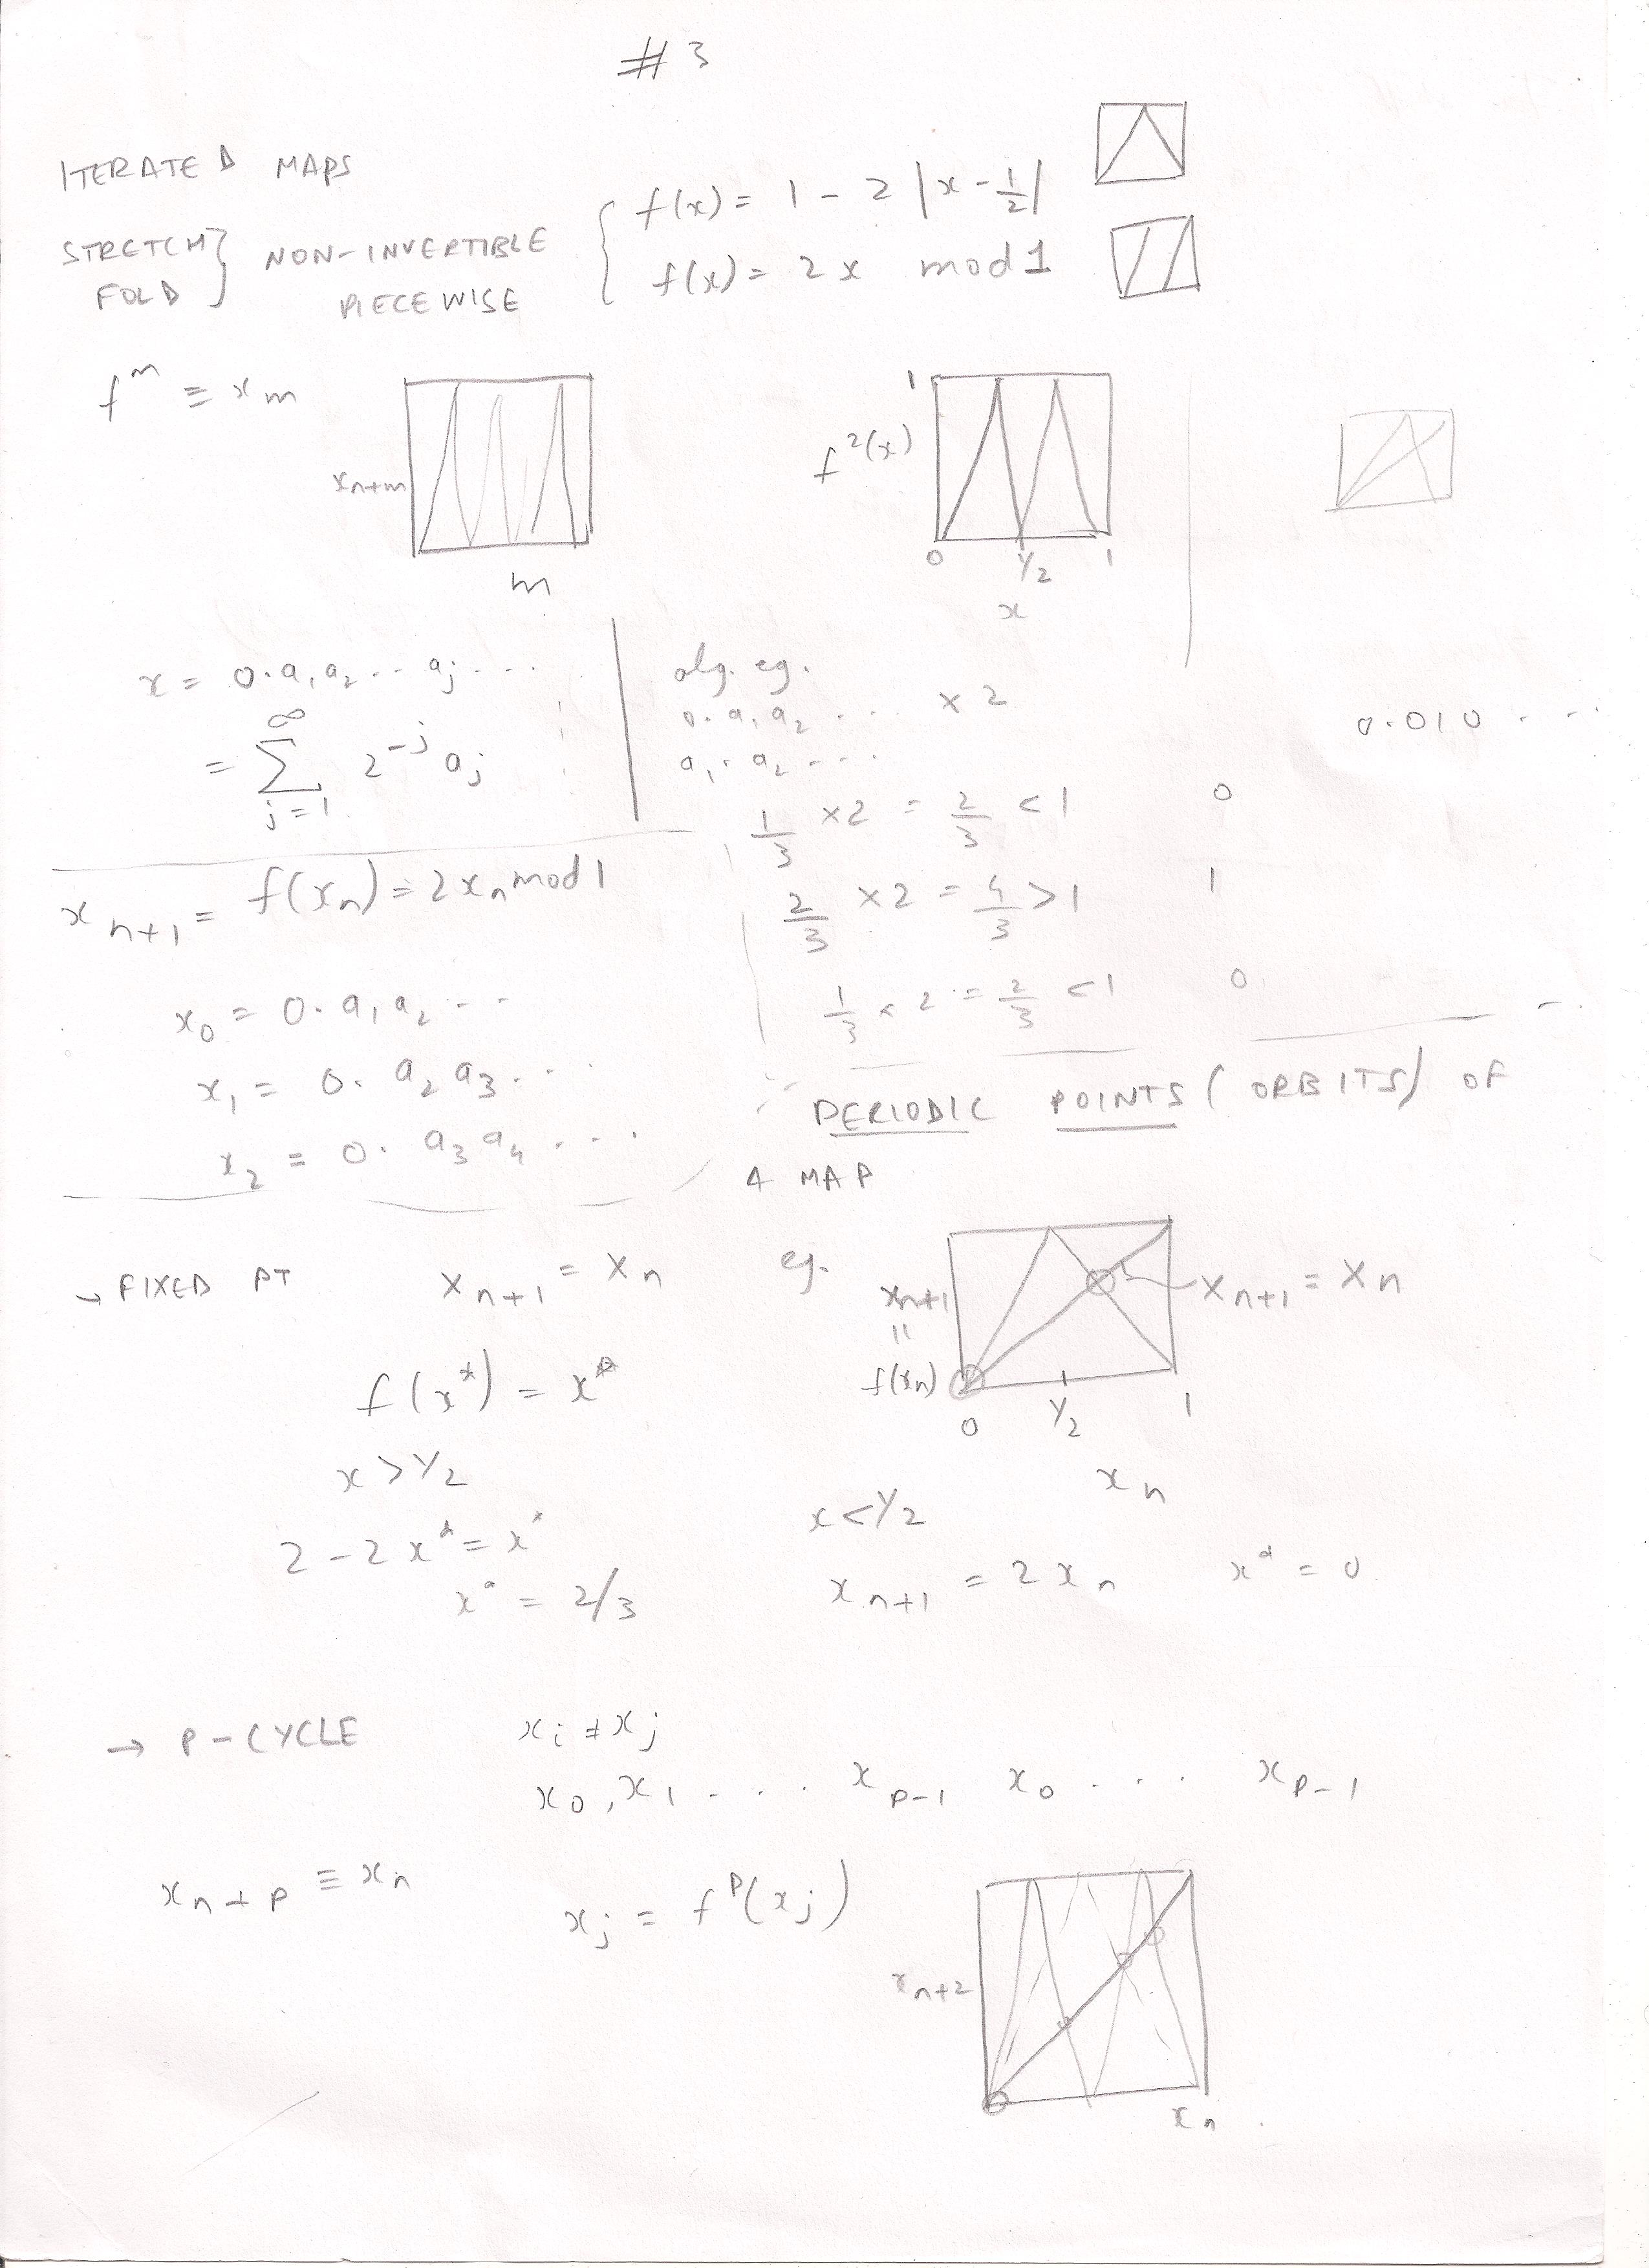 # 3
ITERATED MAPS
f(x) = 1 - 2 |x - 1/2|
STRETCH } NON-INVERTIBLE { f(x) = 2x mod 1
FOLD } PIECEWISE
f^m ≡ x_m
x_{n+m}
m
f^2(x)
1
0 1/2 1
x
x = 0.a_1 a_2 .. a_j ....
= ∑_{j=1}^{∞} 2^{-j} a_j
alg. eg.
0.a_1 a_2 .... × 2
a_1.a_2 ....
0.010 ....
1/3 × 2 = 2/3 < 1 0
2/3 × 2 = 4/3 > 1 1
1/3 × 2 = 2/3 < 1 0
x_{n+1} = f(x_n) = 2x_n mod 1
x_0 = 0.a_1 a_2 ..
x_1 = 0.a_2 a_3 ...
x_2 = 0.a_3 a_4 ....
PERIODIC POINTS (ORBITS) OF
A MAP
→ FIXED PT x_{n+1} = x_n
eg.
x_{n+1}
=
f(x_n)
x_{n+1} = x_n
0 1/2 1
x_n
f(x*) = x*
x > 1/2
2 - 2x* = x*
x* = 2/3
x < 1/2
x_{n+1} = 2x_n x* = 0
→ P-CYCLE x_i ≠ x_j
x_0, x_1 .... x_{p-1} x_0 .... x_{p-1}
x_{n+p} ≡ x_n x_j = f^p(x_j)
x_{n+2}
x_n